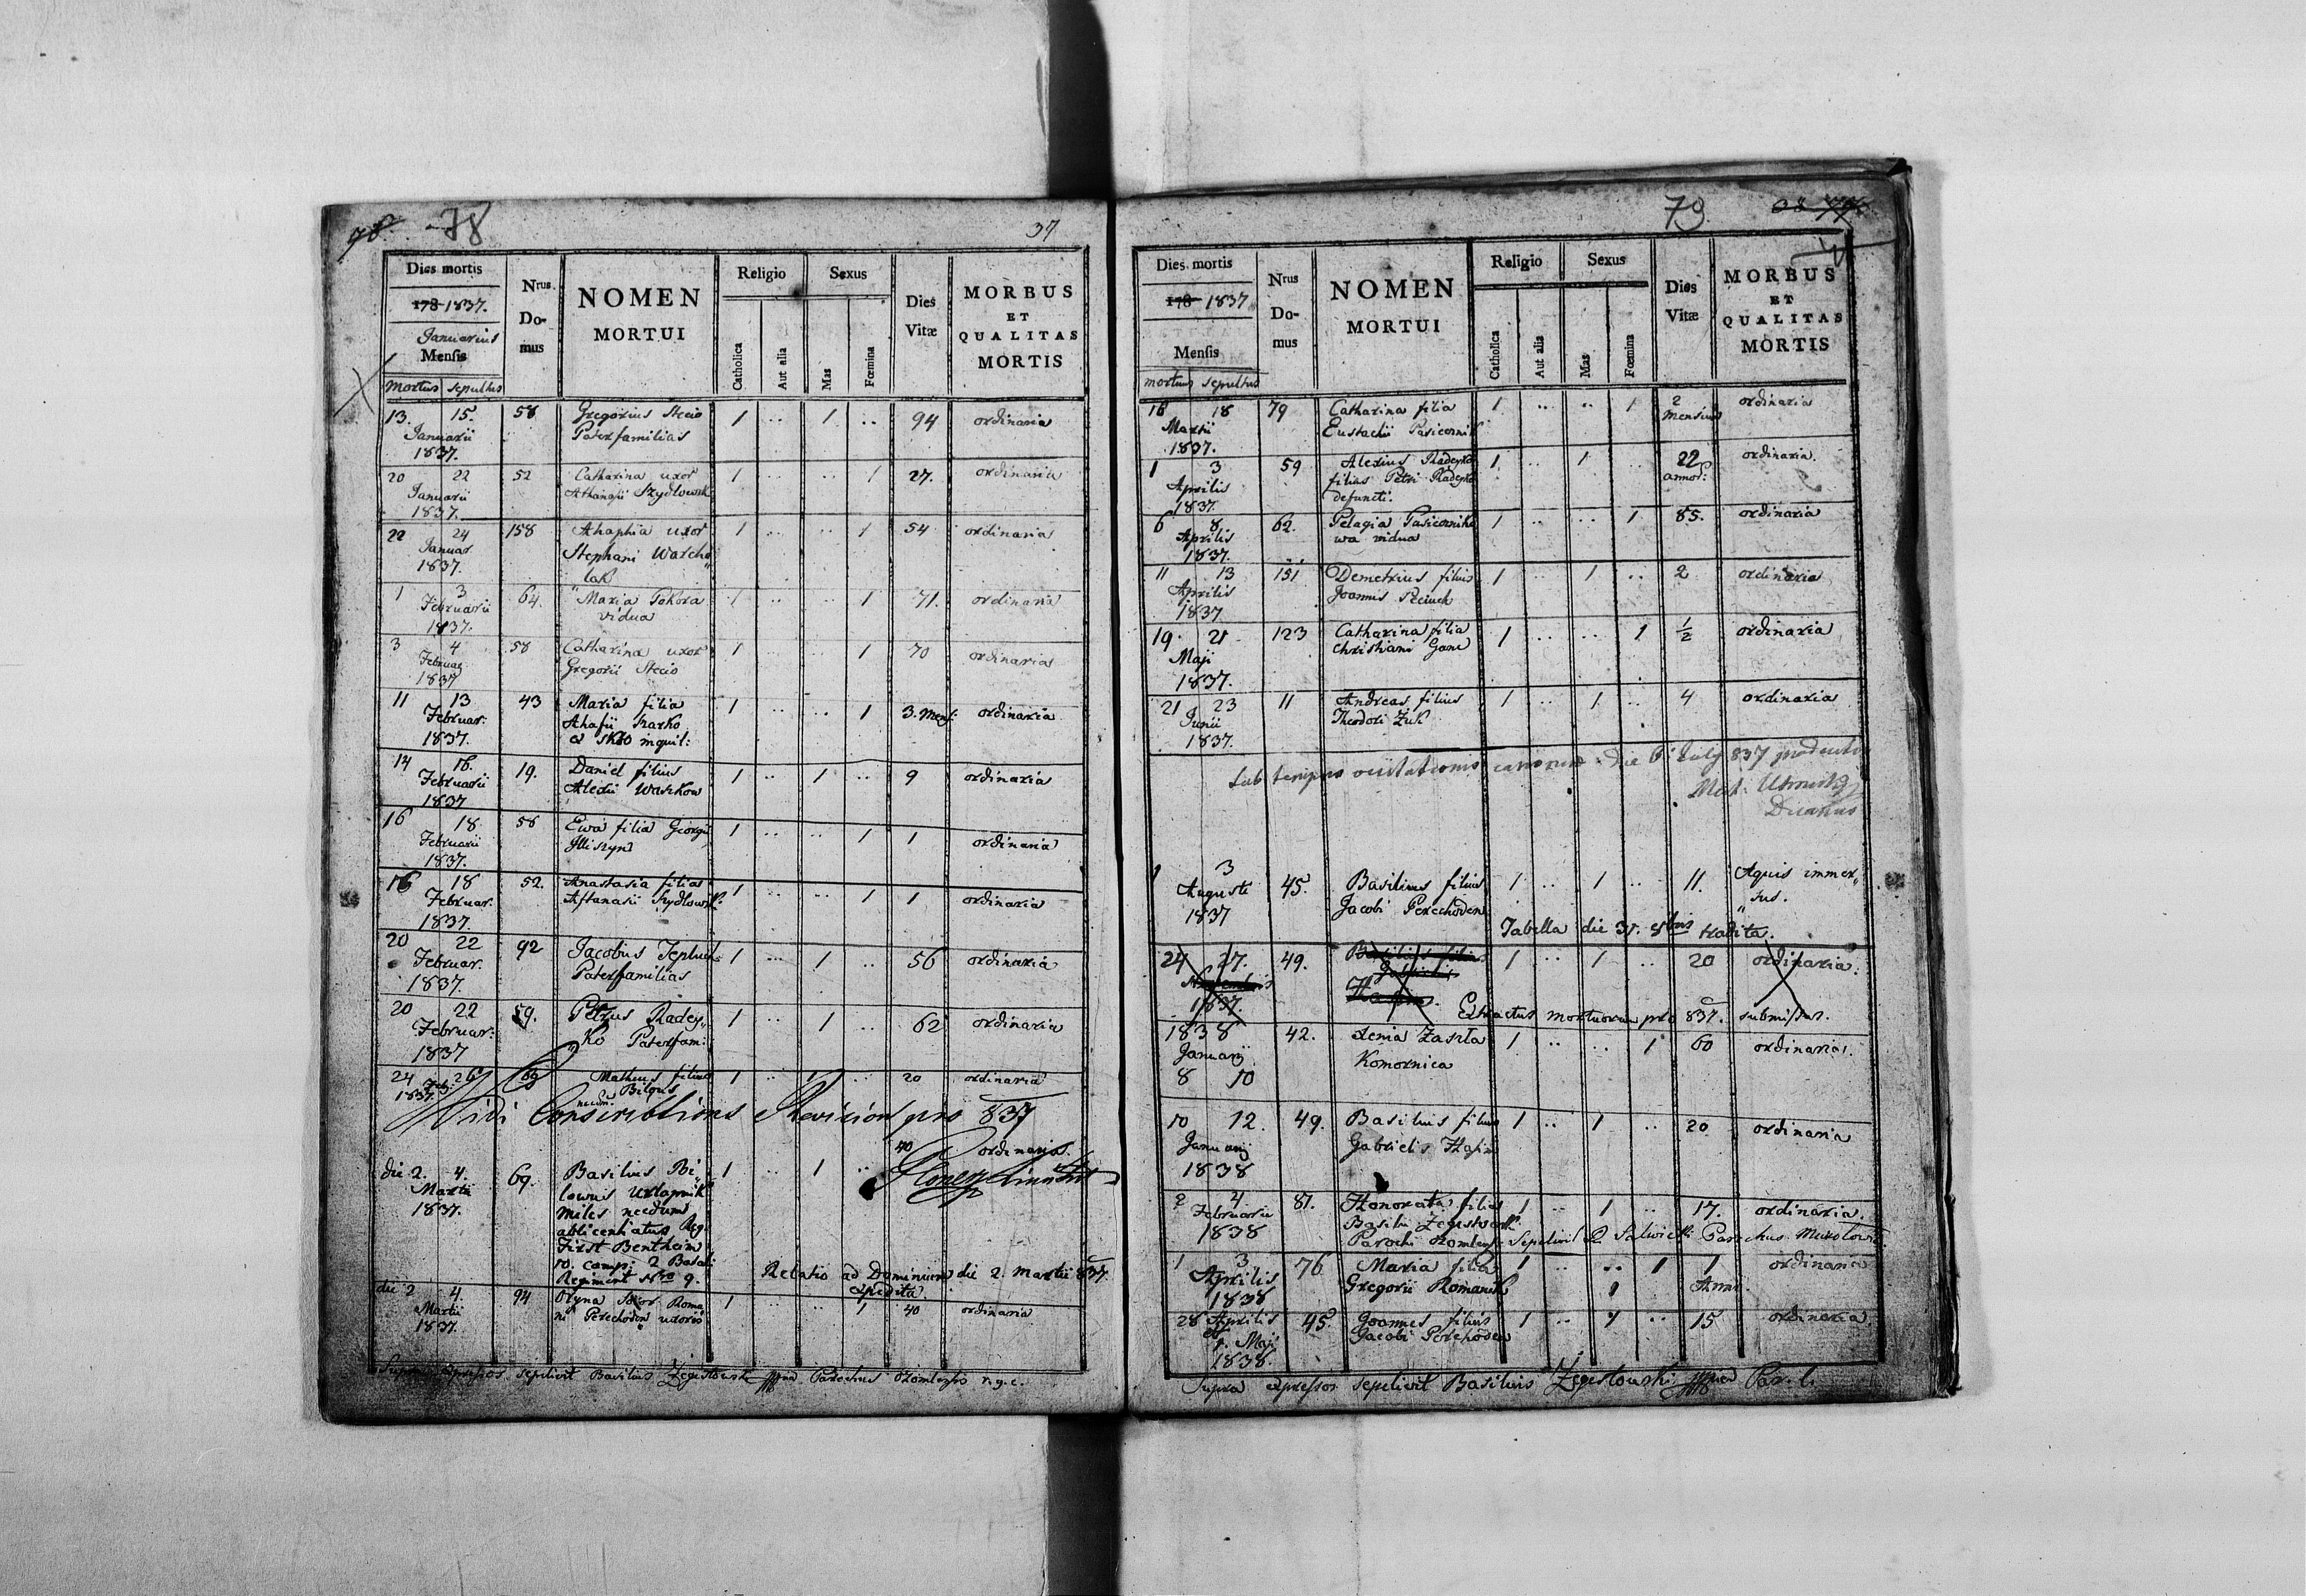 78
37
Dies mortis
178 1837.
Januarius
Mensis
mortus sepultus
Nrus.
Do-
mus
NOMEN
MORTUI
Religio
Catholica
Aut alia
Sexus
Mas
Fœmina
Dies
Vitæ
MORBUS
ET
QUALITAS
MORTIS
13. 15. 58 Gregorius Stecio 1 .. 1 .. 94 ordinaria
Januarii Paterfamilias
1837.
20 22 52 Catharina uxor 1 .. .. 1 27. ordinaria
Januarii Athanasii Szydlowsk
1837.
22 24 158 Ahaphia uxor 1 .. .. 1 54 ordinaria
Januar. Stephani Warcho
1837. lak
1 3 64. Maria Pokora 1 .. .. 1 71. ordinaria
Februarii vidua
1837.
3 4 58 Catharina uxor 1 .. .. 1 70 ordinaria
Februar Gregorii Stecio
1837
11 13 43 Maria filia 1 .. .. 1 3. Mens: ordinaria
Februar: Ahafii
1837. inquil:
14 16. 19. Daniel filius 1 .. 1 .. 9 ordinaria
Februarii Alexii Waszkow
1837
16 18 58 Ewa filia Georgii 1 .. .. 1 1 ordinaria
Februarii Iliszyn
1837.
16 18 52. Anastasia filia 1 .. .. 1 1 ordinaria
Februar. Aftanasii Szydlowsk
1837.
20 22 92 Jacobus 1 .. 1 .. 56 ordinaria
Februar. Paterfamilias
1837.
20 22 59. Petrus Radey„ 1 .. 1 .. 62 ordinaria
Februar: ko Paterfam:
1837
24 26 69 Matheus filius 1 .. 1 .. 20 ordinaria
Feb: Bilous
1837.
Vidi Conscribtions Revision pro 837
40 ordinaria.
die 2. 4. 69. Basilius Bi„ 1 .. 1 ..
Martii lowus Urlapnik
1837. miles necdum
ablicentiatus Reg.
First Bentheim
10. comp: 2 Batal:
Regiment Nro 9.
Relatio ad Dominium die 2. Martii 837.
expedita.
die 2 4. 94 Oryna Soror Roma„ 1 .. .. 1 40 ordinaria
Martii ni Perechoden uxoris
1837.
Supra expressos sepelivit Basilius Zegestowski mp Parochus r.g.c.
79
Dies mortis
178 1837
Mensis
mortuus sepultus
Nrus
Do-
mus
NOMEN
MORTUI
Religio
Catholica
Aut alia
Sexus
Mas
Fœmina
Dies
Vitæ
MORBUS
ET
QUALITAS
MORTIS
16 18 79 Catharina filia 1 .. .. 1 2 ordinaria
Martii Eustachii Pasicznik Mensium
1837.
1 3 59 Alexius Radeyko 1 .. 1 .. 22 ordinaria.
Aprilis filius Petri Radeyko annor:
1837. defuncti.
6 8 62. Pelagia Pasiczniko 1 .. .. 1 85. ordinaria
Aprilis wa vidua
1837.
11 13 151 Demetrius filius 1 .. 1 .. 2 ordinaria
Aprilis Joannis
1837.
19. 21 123 Catharina filia 1 .. .. 1 1/2 ordinaria
Maji Christiani
1837.
21 23 11 Andreas filius 1 .. 1 .. 4 ordinaria
Junii Theodori Żuk
1837.
Sub tempus visitationis canonicae die 6 July 837
Decanus
1 3 45. Basilius filius 1 .. 1 .. 11. Aquis immer„
Augusti Jacobi Perechoden sus.
1837
Tabella die 31. 8bris tradita.
24 27. 49. Basilius filius 1 .. 1 .. 20 ordinaria.
Novembris Gabrielis
1837.
Extractus mortuorum pro 837. submissus.
1838 42. Xenia 1 .. .. 1 60 ordinaria.
Januarij Komornica
8 10
10 12. 49. Basilius filius 1 .. 1 .. 20 ordinaria
Januarij Gabrielis
1838
2 4 81. Honorata filia 1 .. 1 .. 17. ordinaria.
Februarii Basilii Zegestowski
1838 Parochi Sepelivit Parochus
1 3 76 Maria filia 1 .. .. 1 1 ordinaria
Aprilis Gregorii Romanik Anni.
1838
28 Aprilis 45. Joannes filius 1 .. 1 .. 15 ordinaria.
1. Maji Jacobi Perechoden
1838.
Supra expressos sepelivit Basilius Zegestowski mp Par. l.